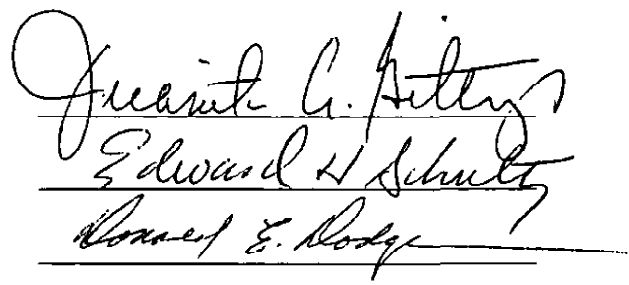 Juanita G. Gittings
Edward H Schultz
Donald E. Dodge